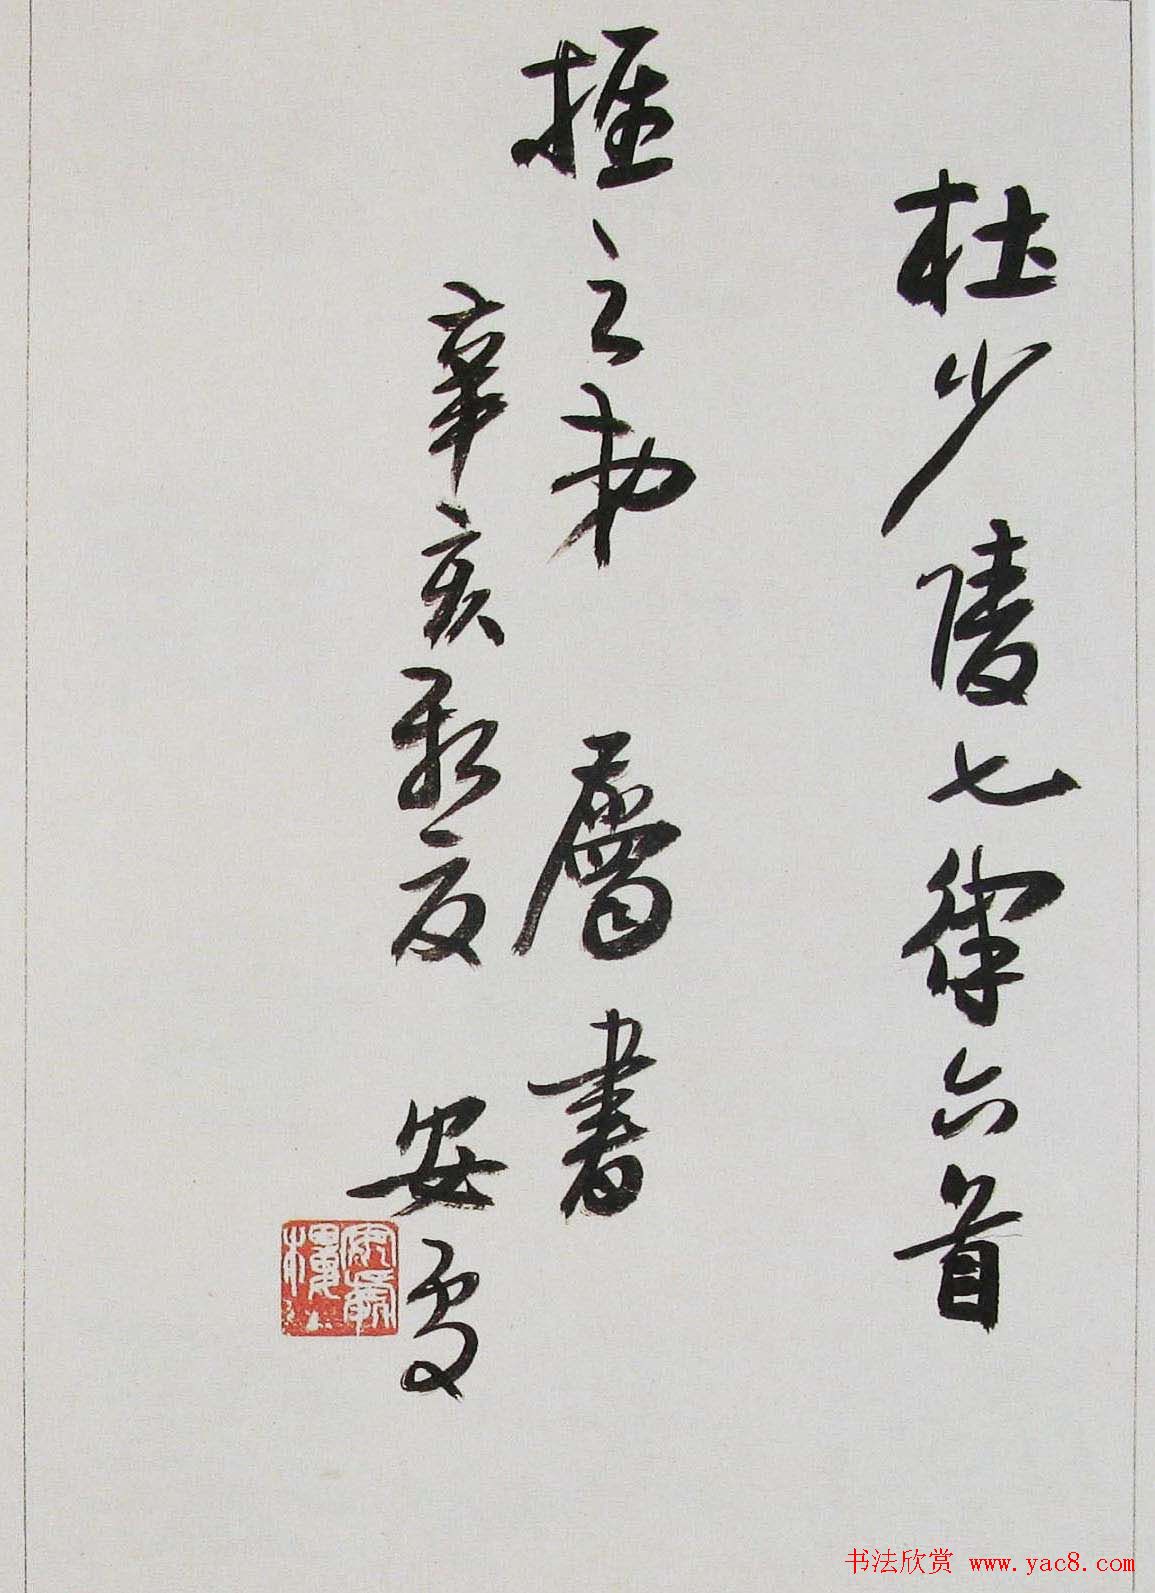 杜少陵七律六首
權之勑 屬書
辛亥新夏 安
书法欣赏 www.yac8.com